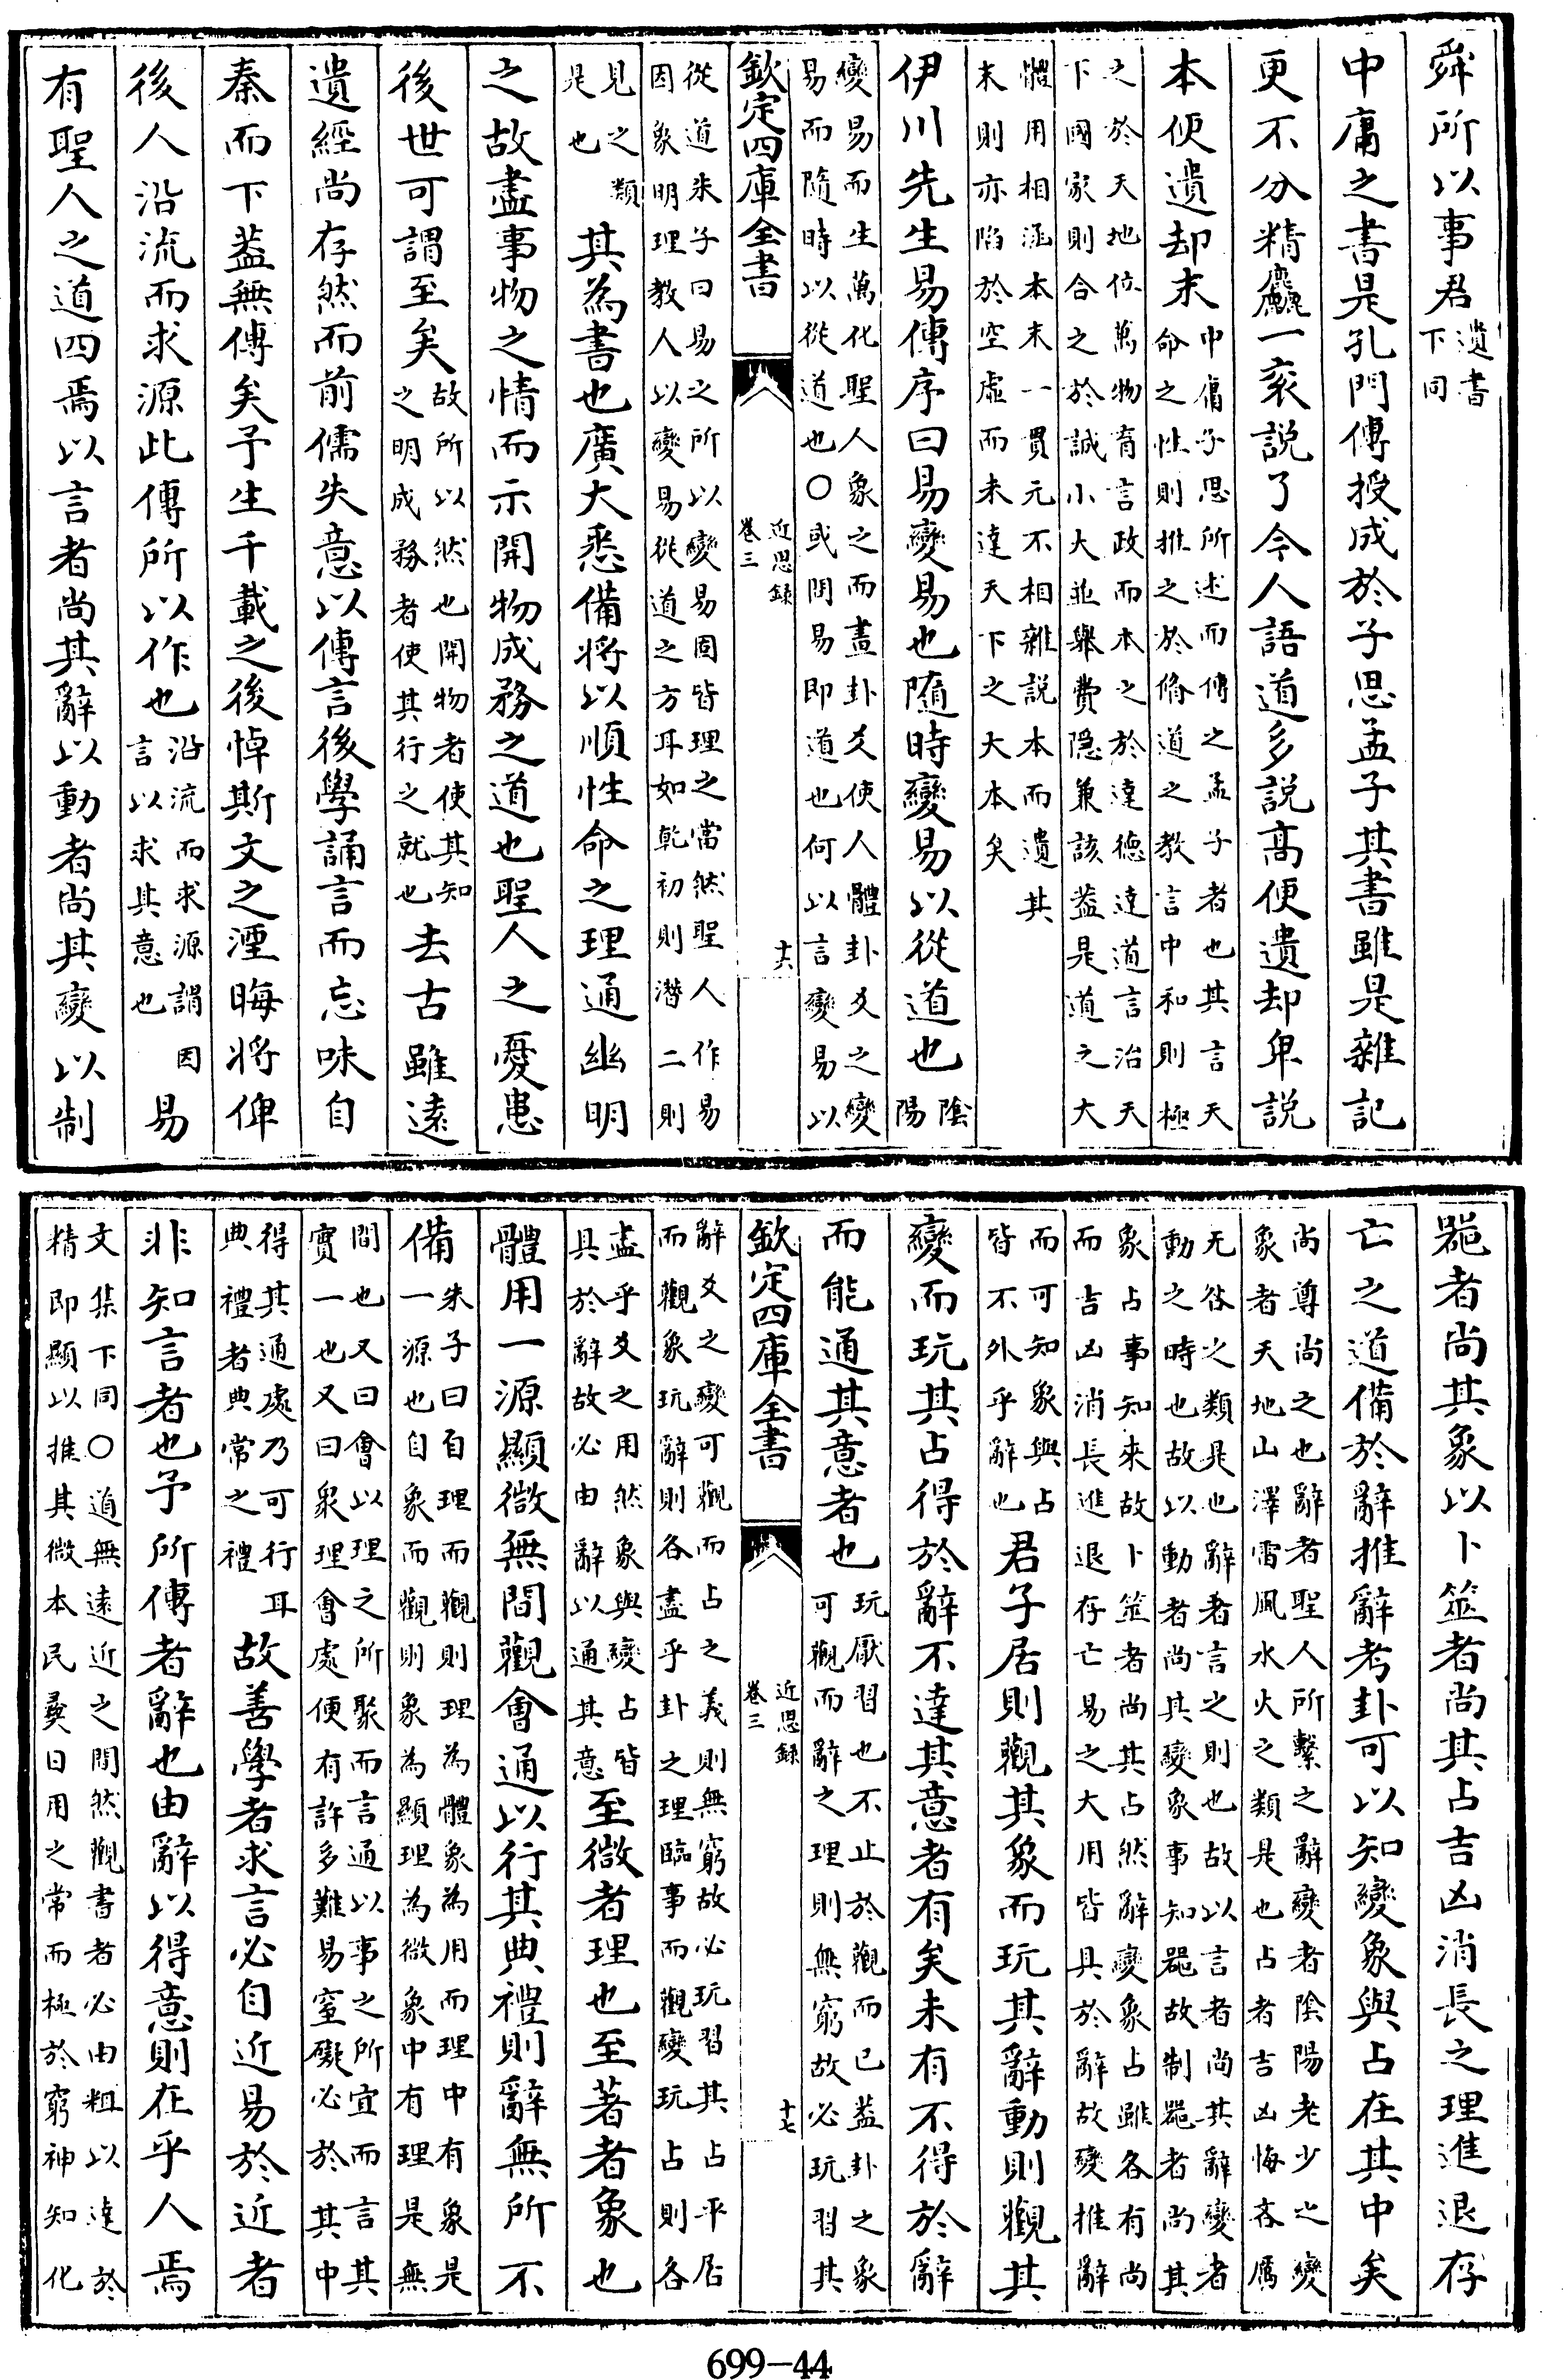 舜所以事君遺書下同
中庸之書是孔門傳授成於子思孟子其書雖是雜記
更不分精麤一衮説了今人語道多説髙便遺却卑説
本便遺却末中庸子思所述而傳之孟子者也其言天命之性則推之於脩道之教言中和則極
之於天地位萬物育言政而本之於達德達道言治天下國家則合之於誠小大並舉費隠兼該葢是道之大
體用相涵本末一貫元不相雜説本而遺其末則亦陷於空虛而未達天下之大本矣
伊川先生易傳序曰易變易也隨時變易以從道也陰陽
變易而生萬化聖人象之而畫卦爻使人體卦爻之變易而隨時以從道也○或問易即道也何以言變易以
欽定四庫全書
近思録
卷三
十六
從道朱子曰易之所以變易固皆理之當然聖人作易因象明理教人以變易從道之方耳如乾初則潛二則
見之類是也其為書也廣大悉備將以順性命之理通幽明
之故盡事物之情而示開物成務之道也聖人之憂患
後世可謂至矣故所以然也開物者使其知之明成務者使其行之就也去古雖逺
遺經尚存然而前儒失意以傳言後學誦言而忘味自
秦而下葢無傳矣予生千載之後悼斯文之湮晦將俾
後人沿流而求源此傳所以作也沿流而求源謂因言以求其意也易
有聖人之道四焉以言者尚其辭以動者尚其變以制
噐者尚其象以卜筮者尚其占吉凶消長之理進退存
亡之道備於辭推辭考卦可以知變象與占在其中矣
尚尊尚之也辭者聖人所繫之辭變者陰陽老少之變象者天地山澤雷風水火之類是也占者吉凶悔吝厲
无咎之類是也辭者言之則也故以言者尚其辭變者動之時也故以動者尚其變象事知噐故制噐者尚其
象占事知來故卜筮者尚其占然辭變象占雖各有尚而吉凶消長進退存亡易之大用皆具於辭故變推辭
而可知象與占皆不外乎辭也君子居則觀其象而玩其辭動則觀其
變而玩其占得於辭不達其意者有矣未有不得於辭
而能通其意者也玩厭習也不止於觀而已葢卦之象可觀而辭之理則無窮故必玩習其
欽定四庫全書
近思録
卷三
十七
辭爻之變可觀而占之義則無窮故必玩習其占平居而觀象玩辭則各盡乎卦之理臨事而觀變玩占則各
盡乎爻之用然象與變占皆具於辭故必由辭以通其意至微者理也至著者象也
體用一源顯微無間觀㑹通以行其典禮則辭無所不
備朱子曰自理而觀則理為體象為用而理中有象是一源也自象而觀則象為顯理為微象中有理是無
間也又曰㑹以理之所聚而言通以事之所宜而言其實一也又曰衆理㑹處便有許多難易窒礙必於其中
得其通處乃可行耳典禮者典常之禮故善學者求言必自近易於近者
非知言者也予所傳者辭也由辭以得意則在乎人焉
文集下同○道無逺近之間然觀書者必由粗以達於精即顯以推其微本民彞日用之常而極於窮神知化
699-44